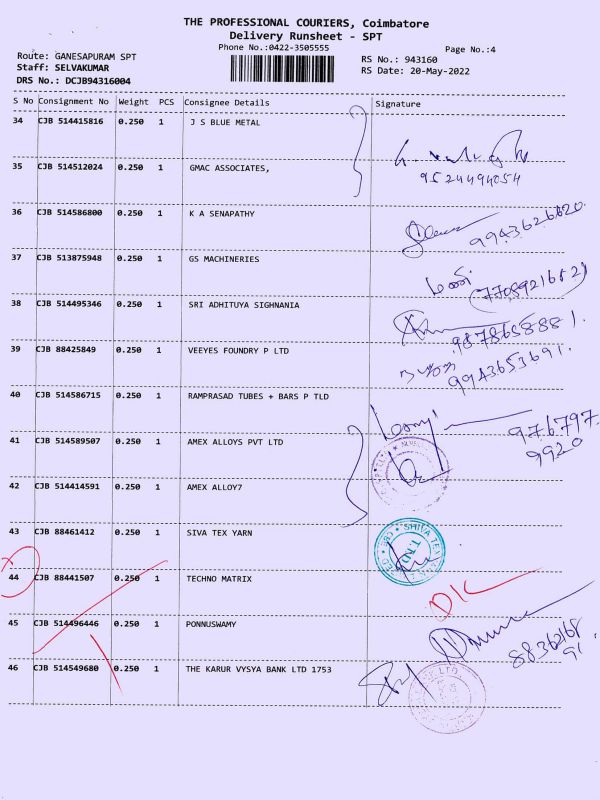 THE PROFESSIONAL COURIERS, Coimbatore
Delivery Runsheet - SPT
Phone No.:0422-3505555
Page No.:4
Route: GANESAPURAM SPT
RS No.: 943160
Staff: SELVAKUMAR
RS Date: 20-May-2022
DRS No.: DCJB94316004
S No Consignment No Weight PCS Consignee Details Signature
34 CJB 514415816 0.250 1 J S BLUE METAL
35 CJB 514512024 0.250 1 GMAC ASSOCIATES,
9524494054
36 CJB 514586800 0.250 1 K A SENAPATHY
9943626820
37 CJB 513875948 0.250 1 GS MACHINERIES
38 CJB 514495346 0.250 1 SRI ADHITUYA SIGHNANIA
9878658881.
39 CJB 88425849 0.250 1 VEEYES FOUNDRY P LTD
9943653691.
40 CJB 514586715 0.250 1 RAMPRASAD TUBES + BARS P TLD
976797
9920
41 CJB 514589507 0.250 1 AMEX ALLOYS PVT LTD
42 CJB 514414591 0.250 1 AMEX ALLOY7
43 CJB 88461412 0.250 1 SIVA TEX YARN
44 CJB 88441507 0.250 1 TECHNO MATRIX
DIC
45 CJB 514496446 0.250 1 PONNUSWAMY
88362168
91.
46 CJB 514549680 0.250 1 THE KARUR VYSYA BANK LTD 1753